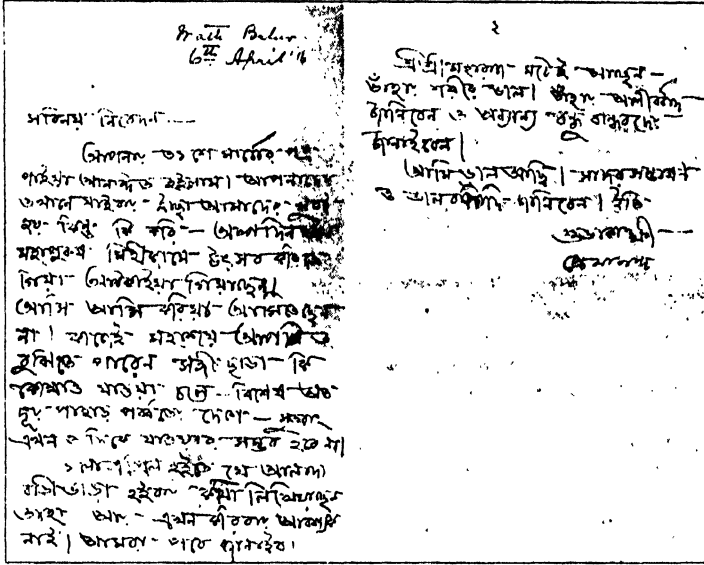 Math Belur
6th April '16
সবিনয় নিবেদন —
আপনার ৩১ শে মার্চের পত্র
পাইয়া আনন্দিত হইলাম। আপনাদের
ওখানে যাইবার ইচ্ছা আমাদের
হয় কিন্তু কি করি —
মহাপুরুষ উৎসব
গিয়া গিয়াছেন।
আসি আসি করিয়া
না। কাজেই মহাশয় আপনি ত
বুঝিতে পারেন সঙ্গী ছাড়া কি
কোথাও যাওয়া চলে বিশেষ অত
দূর পাহাড় পর্ব্বতের দেশ —
এখন ও দিকে যাওয়ার সম্ভব হবে না।
১লা এপ্রিল হইতে যে
বাড়ী ভাড়া হইবার কথা লিখিয়াছেন
তাহা আর এখন করিবার আবশ্যক
নাই। আমরা পরে জানাইব।
২
শ্রীশ্রীমহারাজ মঠেই আছেন —
তাঁহার শরীর ভাল। তাঁহার আশীর্ব্বাদ
জানিবেন ও অন্যান্য বন্ধু বান্ধবদের
জানাইবেন।
আমি ভাল আছি। সাদর সম্ভাষণ
ও ভালবাসাদি জানিবেন। ইতি
শুভাকাঙ্ক্ষী —